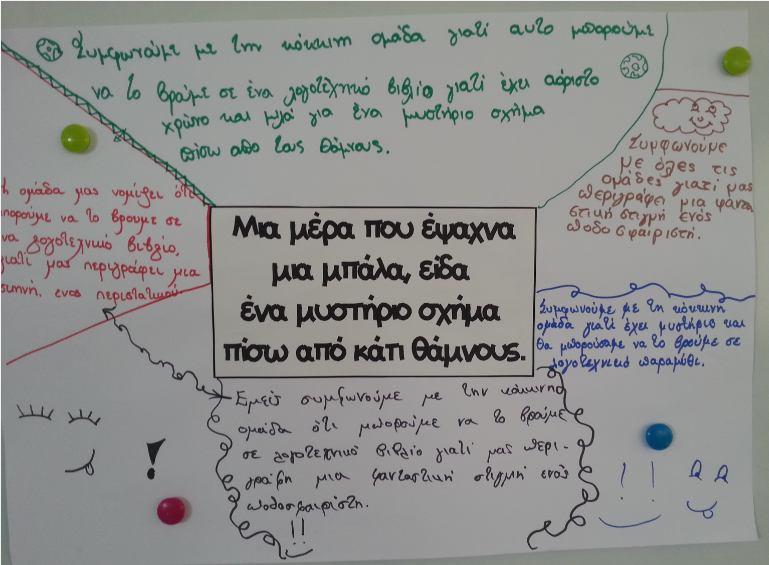 Συμφωνούμε με την κόκκινη ομάδα γιατί αυτό μπορούμε
να το βρούμε σε ένα λογοτεχνικό βιβλίο γιατί έχει αόριστο
χρόνο και μιλά για ένα μυστήριο σχήμα
πίσω απο τους θάμνους.
Συμφωνούμε
με όλες τις
ομάδες γιατί μας
περιγράφει μια φαντα
στική στιγμή ενός
ποδοσφαιριστή.
η ομάδα μας νομίζει ότι
μπορούμε να το βρουμε σε
να λογοτεχνικό βιβλίο,
γιατί μας περιγράφει μια
σκηνή, ενος περιστατικού
Μια μέρα που έψαχνα
μια μπάλα, είδα
ένα μυστήριο σχήμα
πίσω από κάτι θάμνους.
Συμφωνούμε με τη κόκκινη
ομάδα γιατί έχει μυστήριο και
θα μπορούσαμε να το βρούμε σε
λογοτεχνικό παραμύθι.
Εμείς συμφωνούμε με την κόκκινη
ομάδα ότι μπορούμε να το βρούμε
σε λογοτεχνικό βιβλίο γιατί μας περι-
γράβη μια φανταστική στιγμή ενός
ποδοσφαιρίστη.
!!
!
! !